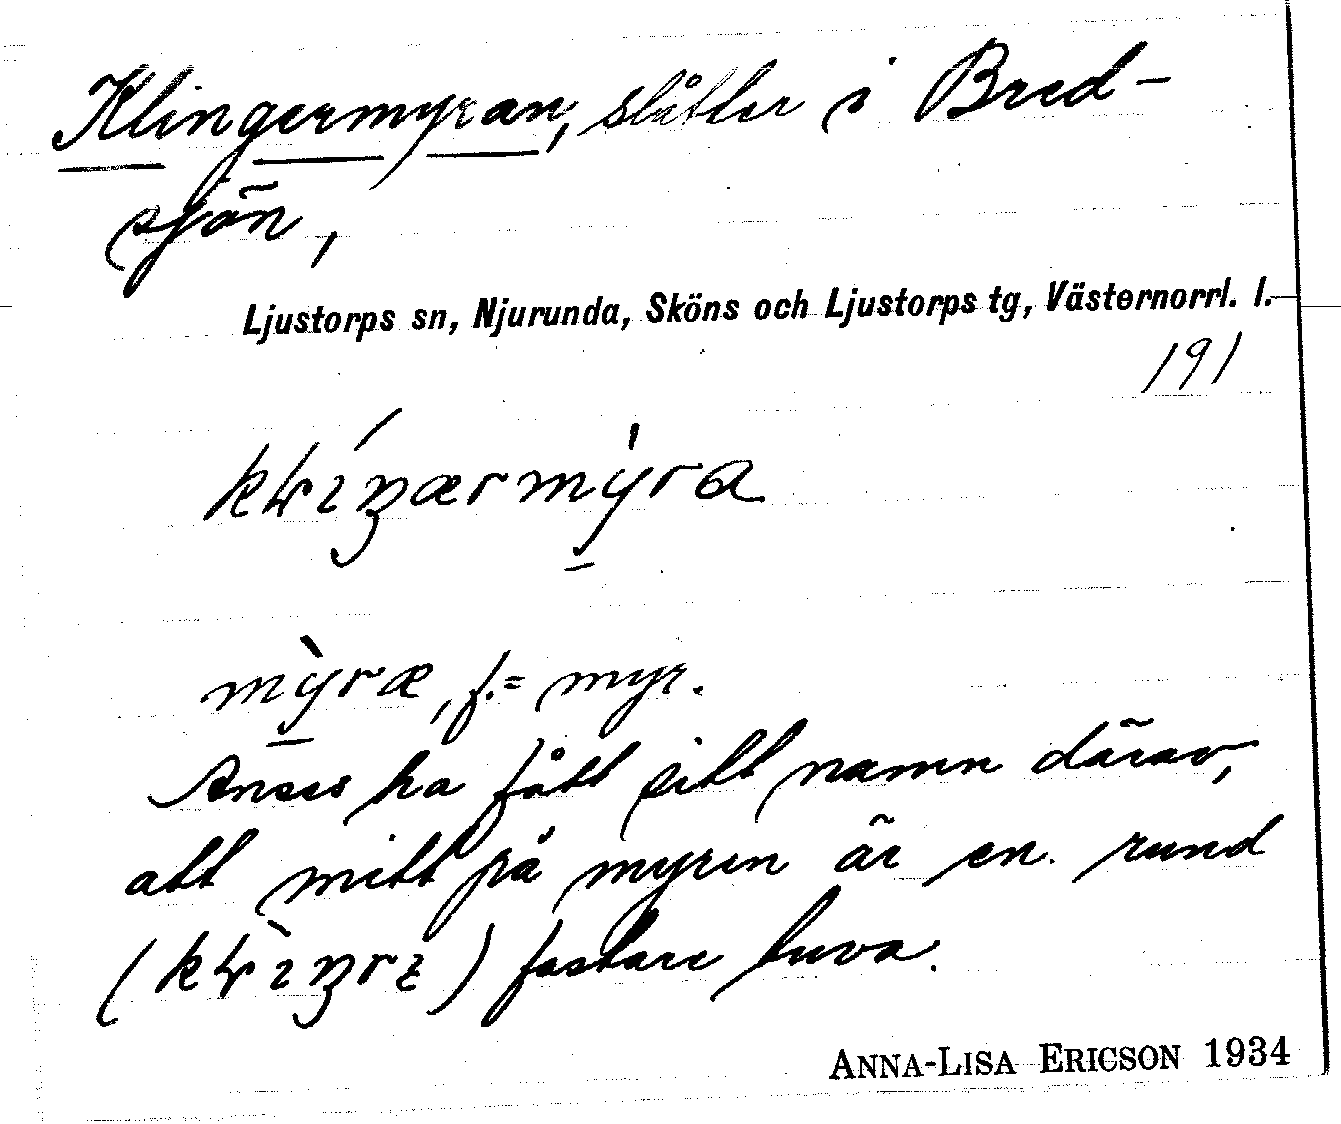 Klingermyran, slåtter i Bred-
sjön,
Ljustorps sn, Njurunda, Sköns och Ljustorps tg, Västernorrl. l.
191
mỳræ, f. = myr.
Anses ha fått sitt namn därav,
att mitt på myren är en rund
fastare tuva.
ANNA-LISA ERICSON 1934